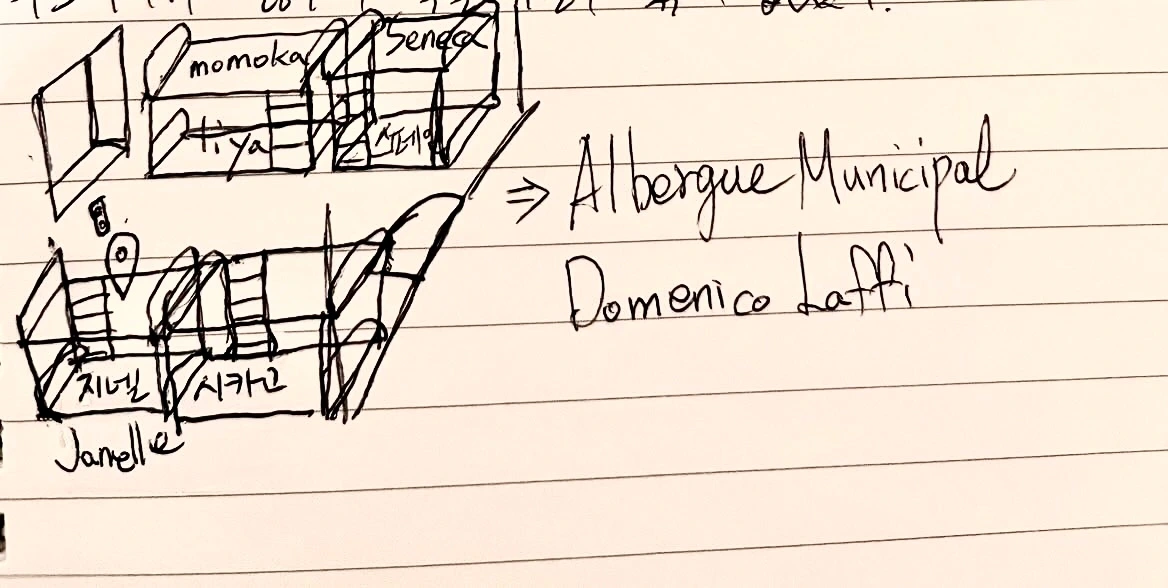 momoka
Seneca
tiya
지넬
시카고
Janelle
⇒ Albergue Municipal
Domenico Laffi